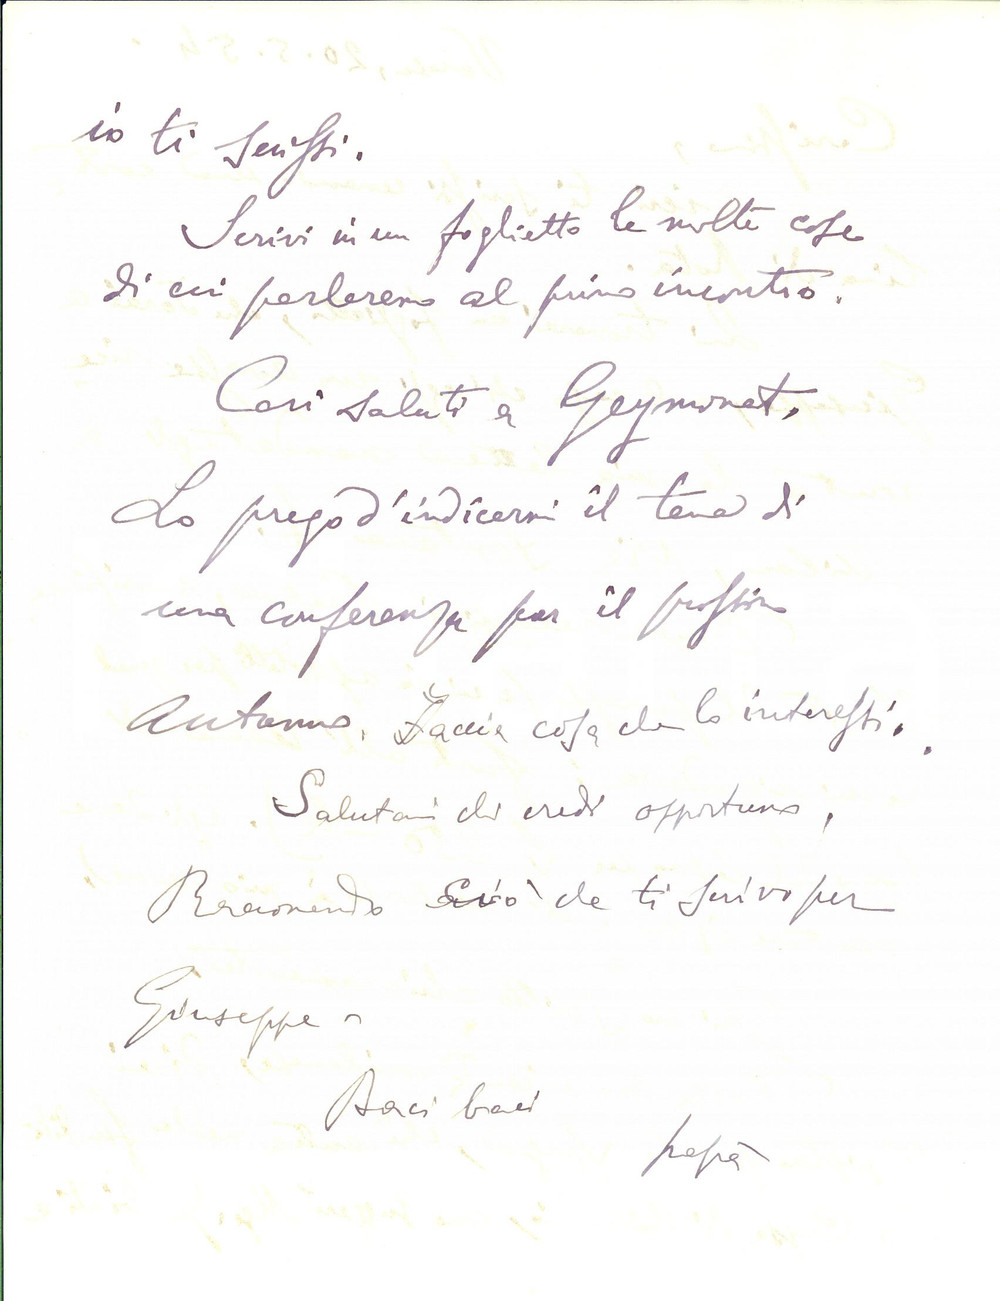 io ti scrissi.
Scrivi in un foglietto le molte cose
di cui parleremo al primo incontro.
Cari saluti a Geymonat.
Lo prego d'indicarmi il tema di
una conferenza per il prossimo
Autunno. Faccia cosa che lo interessi.
Salutami chi credi opportuno,
Raccomando ciò che ti scrivo per
Giuseppe -
Baci baci
papà